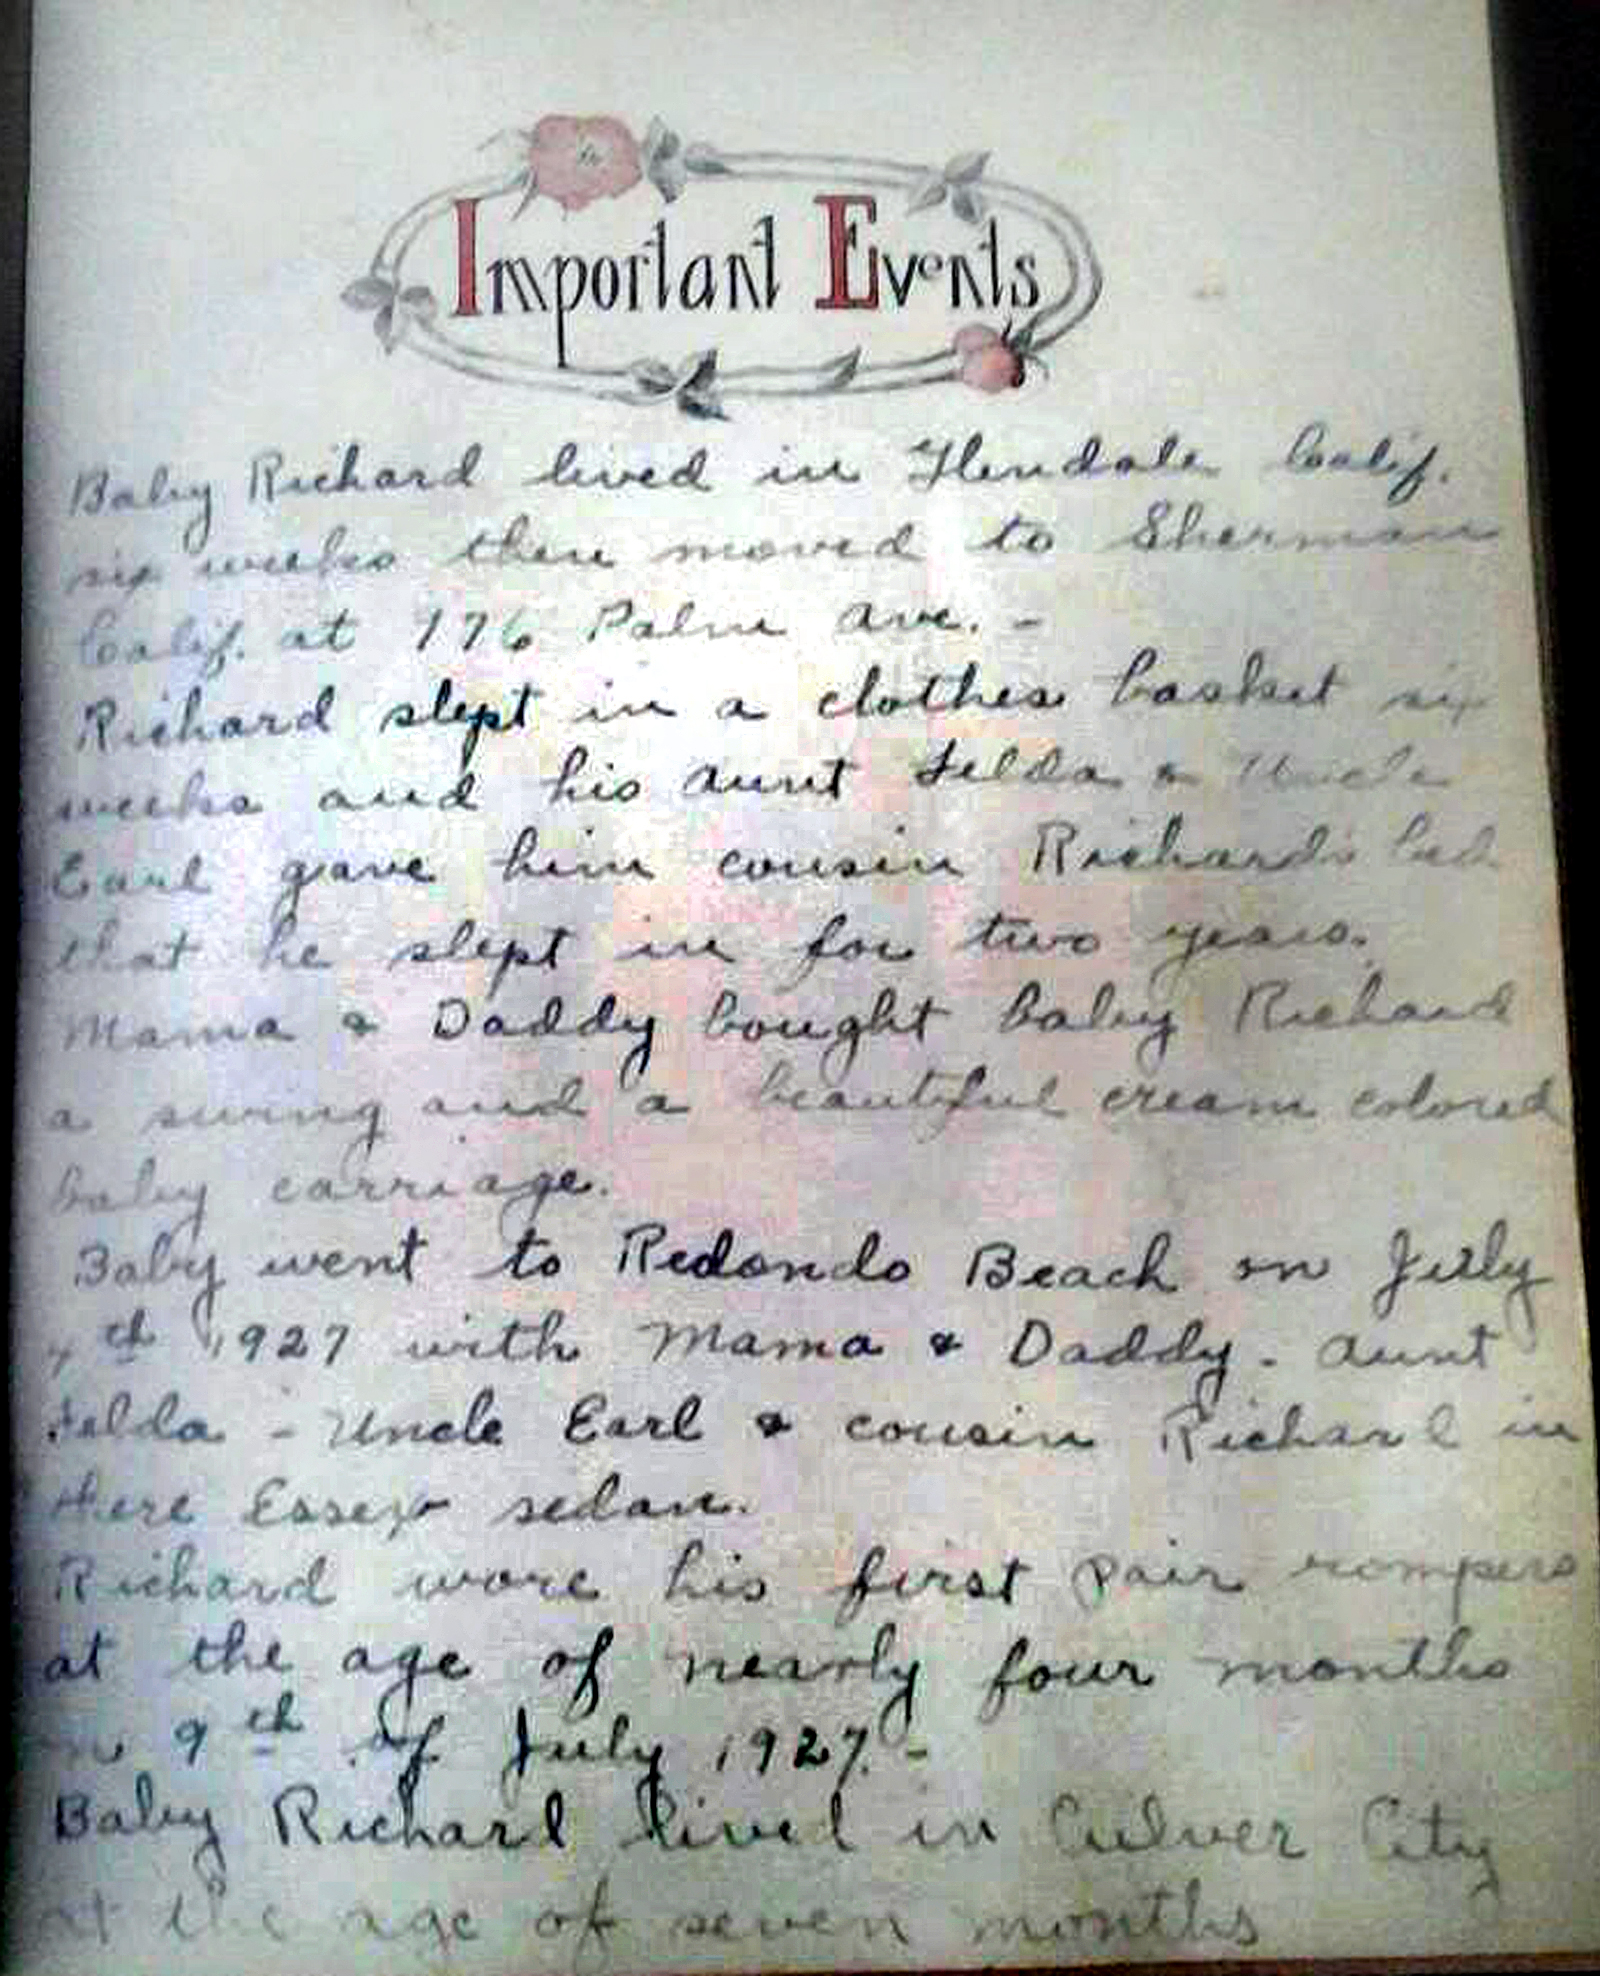 Important Events
Baby Richard lived in Glendale Calif.
six weeks then moved to Sherman
Calif. at 176 Palm Ave. -
Richard slept in a clothes basket six
weeks and his aunt Zelda & Uncle
Earl gave him cousin Richards bed
that he slept in for two years.
Mama & Daddy bought baby Richard
a swing and a beautiful cream colored
baby carriage.
Baby went to Redondo Beach on July
th 1927 with Mama & Daddy - aunt
Zelda - Uncle Earl & cousin Richard in
there Essex sedan.
Richard wore his first pair rompers
at the age of nearly four months
on 9th of July 1927. -
Baby Richard lived in Culver City
at the age of seven months